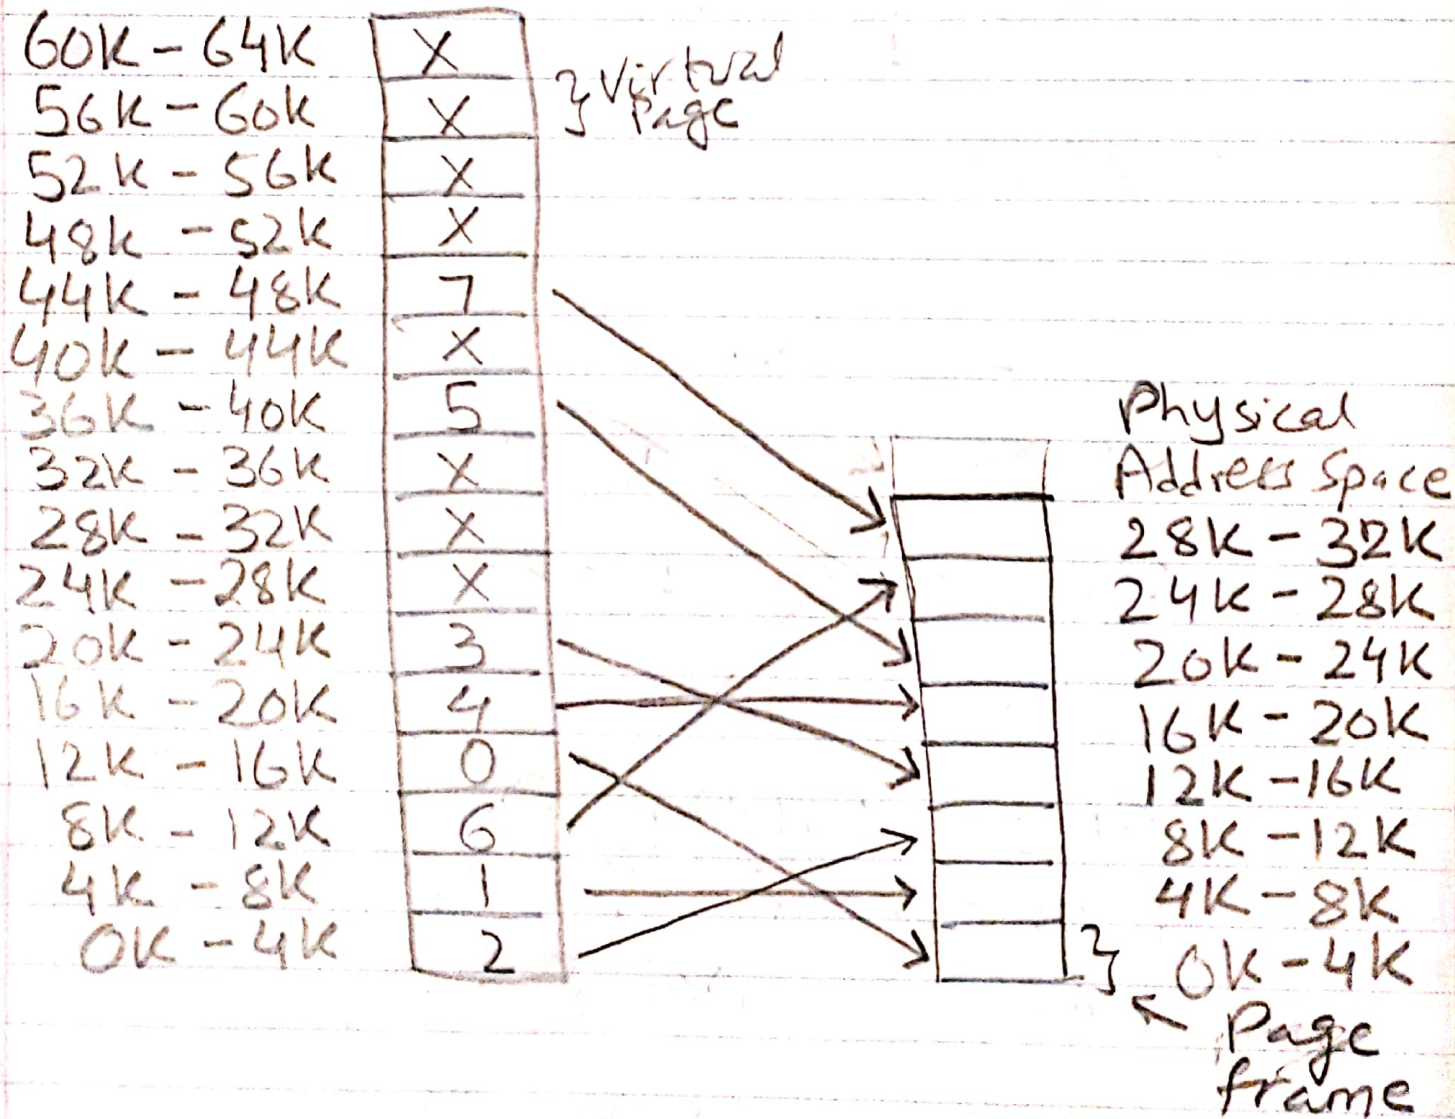 60K - 64K X
} Virtual
Page
56K - 60K X
52K - 56K X
48K - 52K X
44K - 48K 7
40K - 44K X
36K - 40K 5
32K - 36K X
28K - 32K X
24K - 28K X
20K - 24K 3
16K - 20K 4
12K - 16K 0
8K - 12K 6
4K - 8K 1
0K - 4K 2
Physical
Address Space
28K - 32K
24K - 28K
20K - 24K
16K - 20K
12K - 16K
8K - 12K
4K - 8K
} 0K - 4K
Page
frame